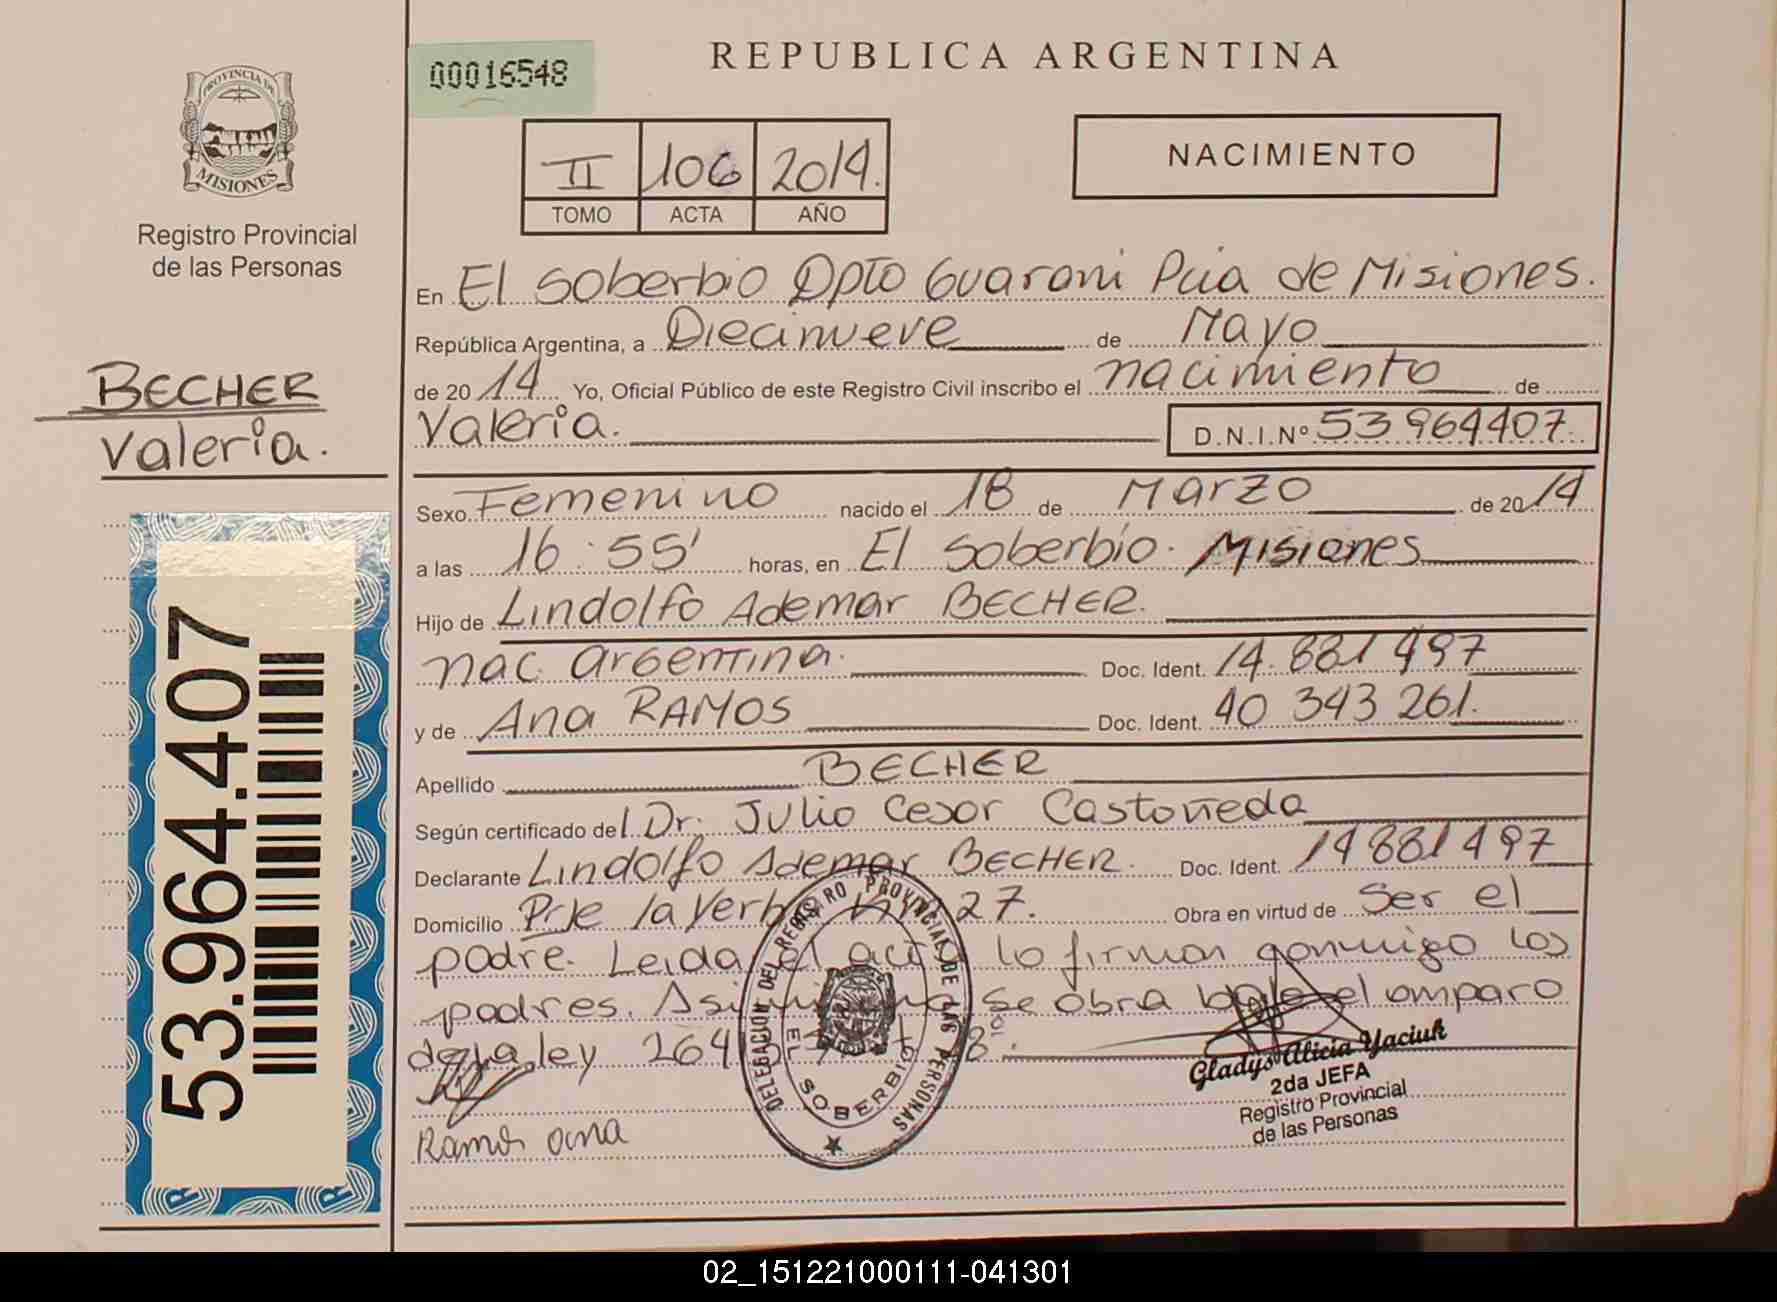 00016548
REPUBLICA ARGENTINA
PROVINCIA DE
MISIONES
Registro Provincial
de las Personas
II 106 2014.
TOMO ACTA AÑO
NACIMIENTO
En El Soberbio Dpto Guarani Pcia de Misiones.
República Argentina, a Diecinueve de Mayo
de 20 14 Yo, Oficial Público de este Registro Civil inscribo el nacimiento de
Valeria. D.N.I.Nº 53964407.
BECHER
Valeria.
Sexo Femenino nacido el 18 de Marzo de 20 14
a las 16:55' horas, en El Soberbio. Misiones
Hijo de Lindolfo Ademar BECHER.
nac. argentina. Doc. Ident. 14.881497
y de Ana RAMOS Doc. Ident. 40 343 261.
Apellido BECHER
Según certificado del Dr. Julio Cesar Castoñeda
Declarante Lindolfo Ademar BECHER. Doc. Ident. 14881497
Domicilio Pje la Verba Km 27. Obra en virtud de Ser el
padre. Leida el acta lo firman conmigo los
padres. Asi mismo se obra bajo el amparo
de la ley 264 8º.
Ramos ana
53.964.407
DELEGACION DEL REGISTRO PROVINCIAL DE LAS PERSONAS
EL SOBERBIO
Gladys Alicia Yaciuk
2da JEFA
Registro Provincial
de las Personas
02_151221000111-041301